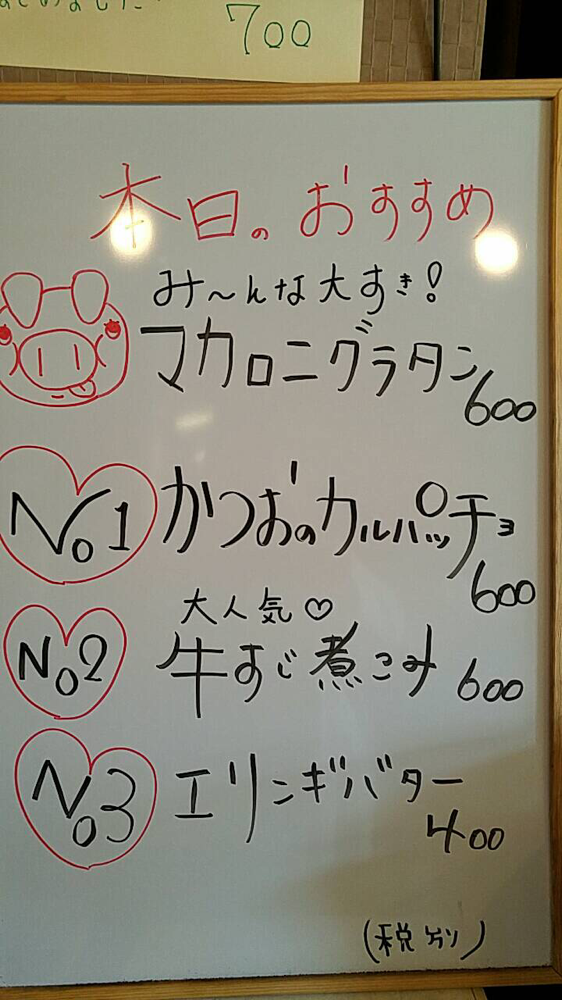 700
本日のおすすめ
み〜んな大すき!
マカロニグラタン
600
No1 かつおのカルパッチョ
600
大人気♡
No2 牛すじ煮こみ 600
No3 エリンギバター
400
(税別)